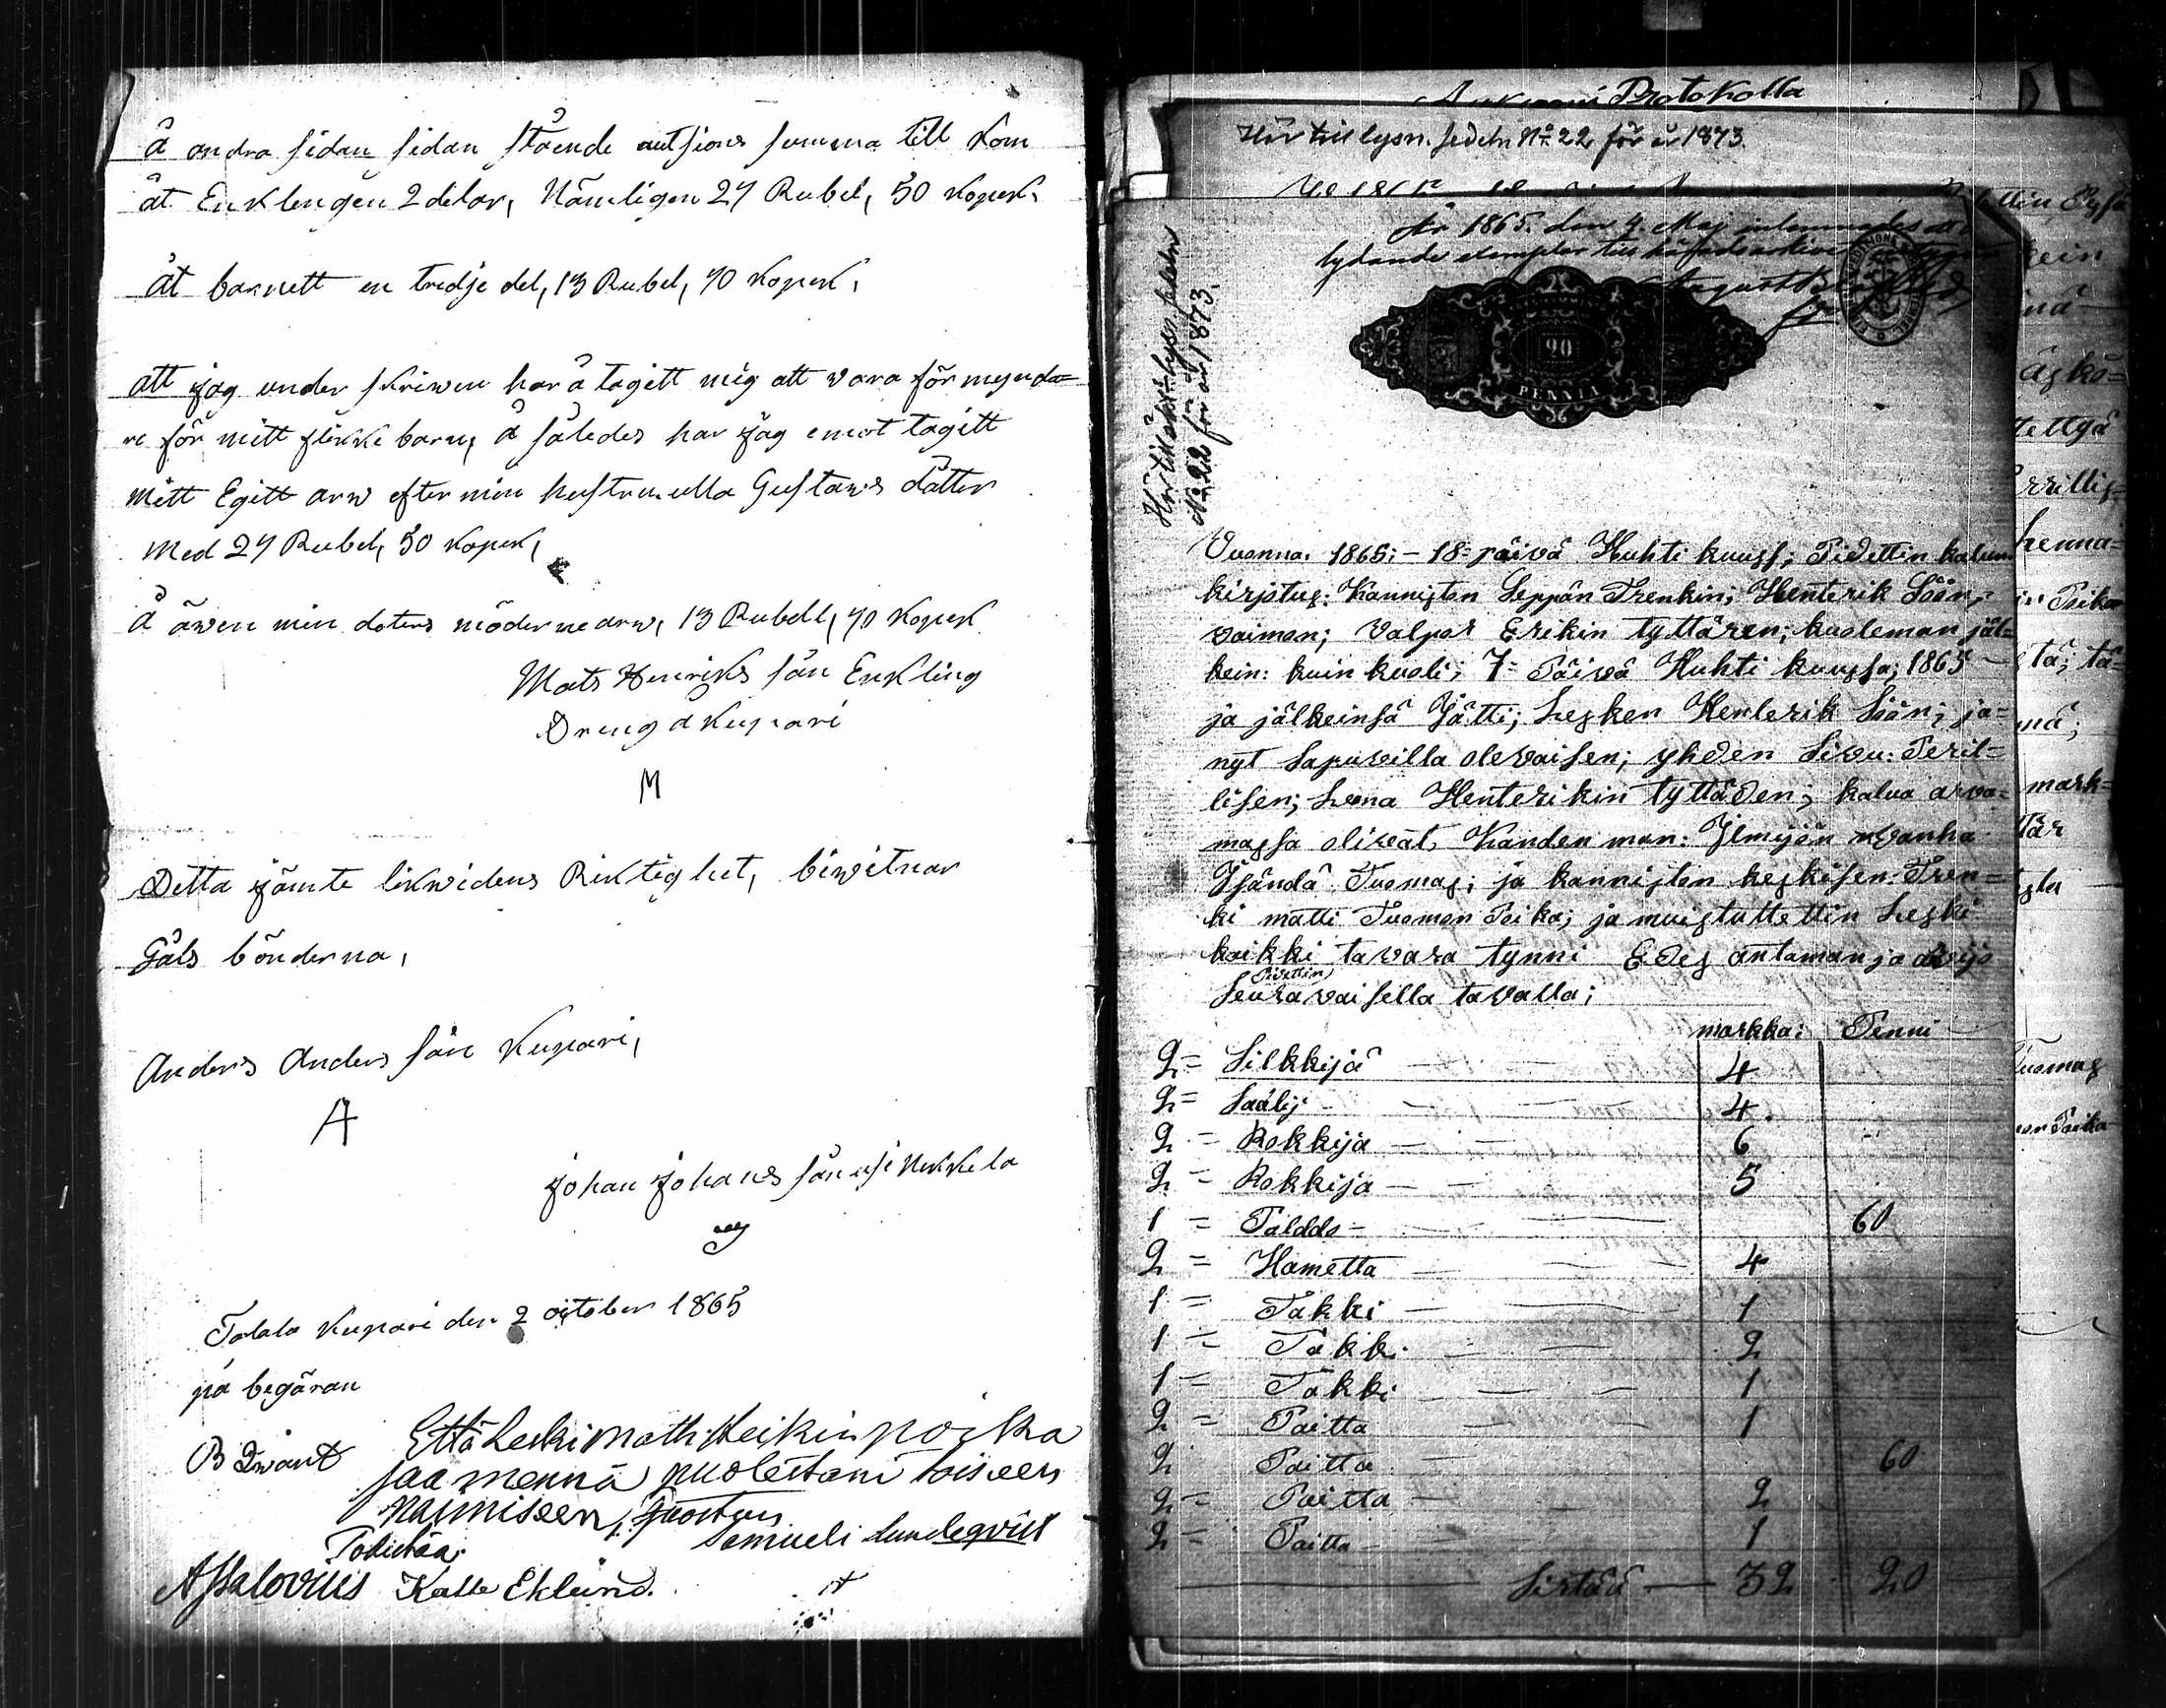 å andra sidan sidan stående autsions summa till kom
åt Enklengen 2 delar, Nämligen 27 Rubel, 50 kopek.
åt barnett en tredje del, 13 Rubel, 70 kopek,
att jag under skriwen har å tagett mig att vara för mynda=
re för mitt flikke barn, å således har jag emot tagitt
mitt Egitt arw efter min hustru ulla Gustaws dåtter
med 27 Rubel, 50 kopek,
å äwen min doters möderne arw, 13 Rubell, 70 kopek
Mats Henriks sån Enkling
Dreng å Kupari
M
Detta jämte likwidens Riktighet, biwitnar
Gåls bönderna,
Anders Anders sån Kupari,
A
Johan Johans sån usi Nikkila
Talala Kupari den 2 october 1865
på begäran
B Qwant
Että Leski Matti Heikin poika
saa mennä puolestani toiseen
naimiseen,
Samueli Lundeqvist
Todistaa:
A Palovius Kalle Eklund.
Protokolla
Hör till lysn. sedeln No 22 för år 1873.
År 1865. den 4. Maj inlemnades ett
lydande exemplar till häradsarkivet
August
Hör till äkt. lysn. sedeln
No 22 för år 1873.
90
PENNIÄ
Vuonna: 1865: - 18= päivä Huhti kuuss; Pidettin kalun
kirjotus: Kanniston Seppän Trenkin; Henterik Söön,
vaimon; Valpor Erikin tyttären; kuoleman jäl=
kein: kuin kuoli; 7= Päivä Huhti kuussa; 1865
ja jälkeinsä Jätti; Lesken Henterik Söön; ja=
nyt Sapuvilla olevaisen; yhden Sivu: Peril=
lisen; Leena Henterikin tyttäden; kalua arva=
massa olivat, Kanden man: Jlmijän wanha
Jsändä Tuomas; ja kannisten keskisen: Tren=
ki matti Tuoman Poika; ja muistuttettin Leski
kaikki tavara tynni Edes antaman ja arvijo
Pidettin
Seuravaisella tavalla;
markka: Penni
2= Silkkijä 4
2= Saalij 4.
2 = Rokkija 6
2 = Rokkija 5
1 = Palddo 60
2 = Hametta 4
1 = Takki 1
1 = Takki 2
1 = Takki 1
2 = Paitta 1
2 Paitta 60
2 = Paitta 2
2 = Paitta 1
Sirtää 32 20